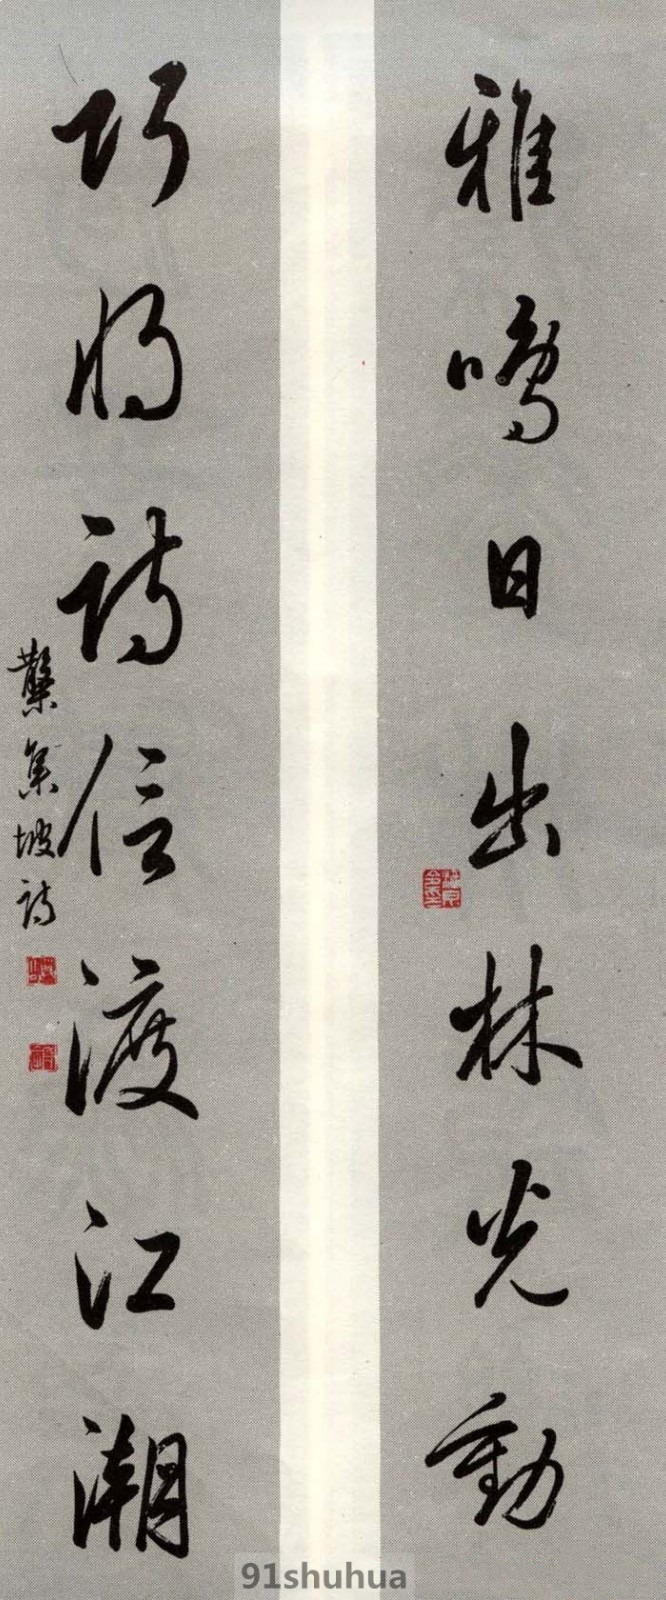 雅鳴日出林光動
巧將詩信渡江潮
集坡詩
91shuhua